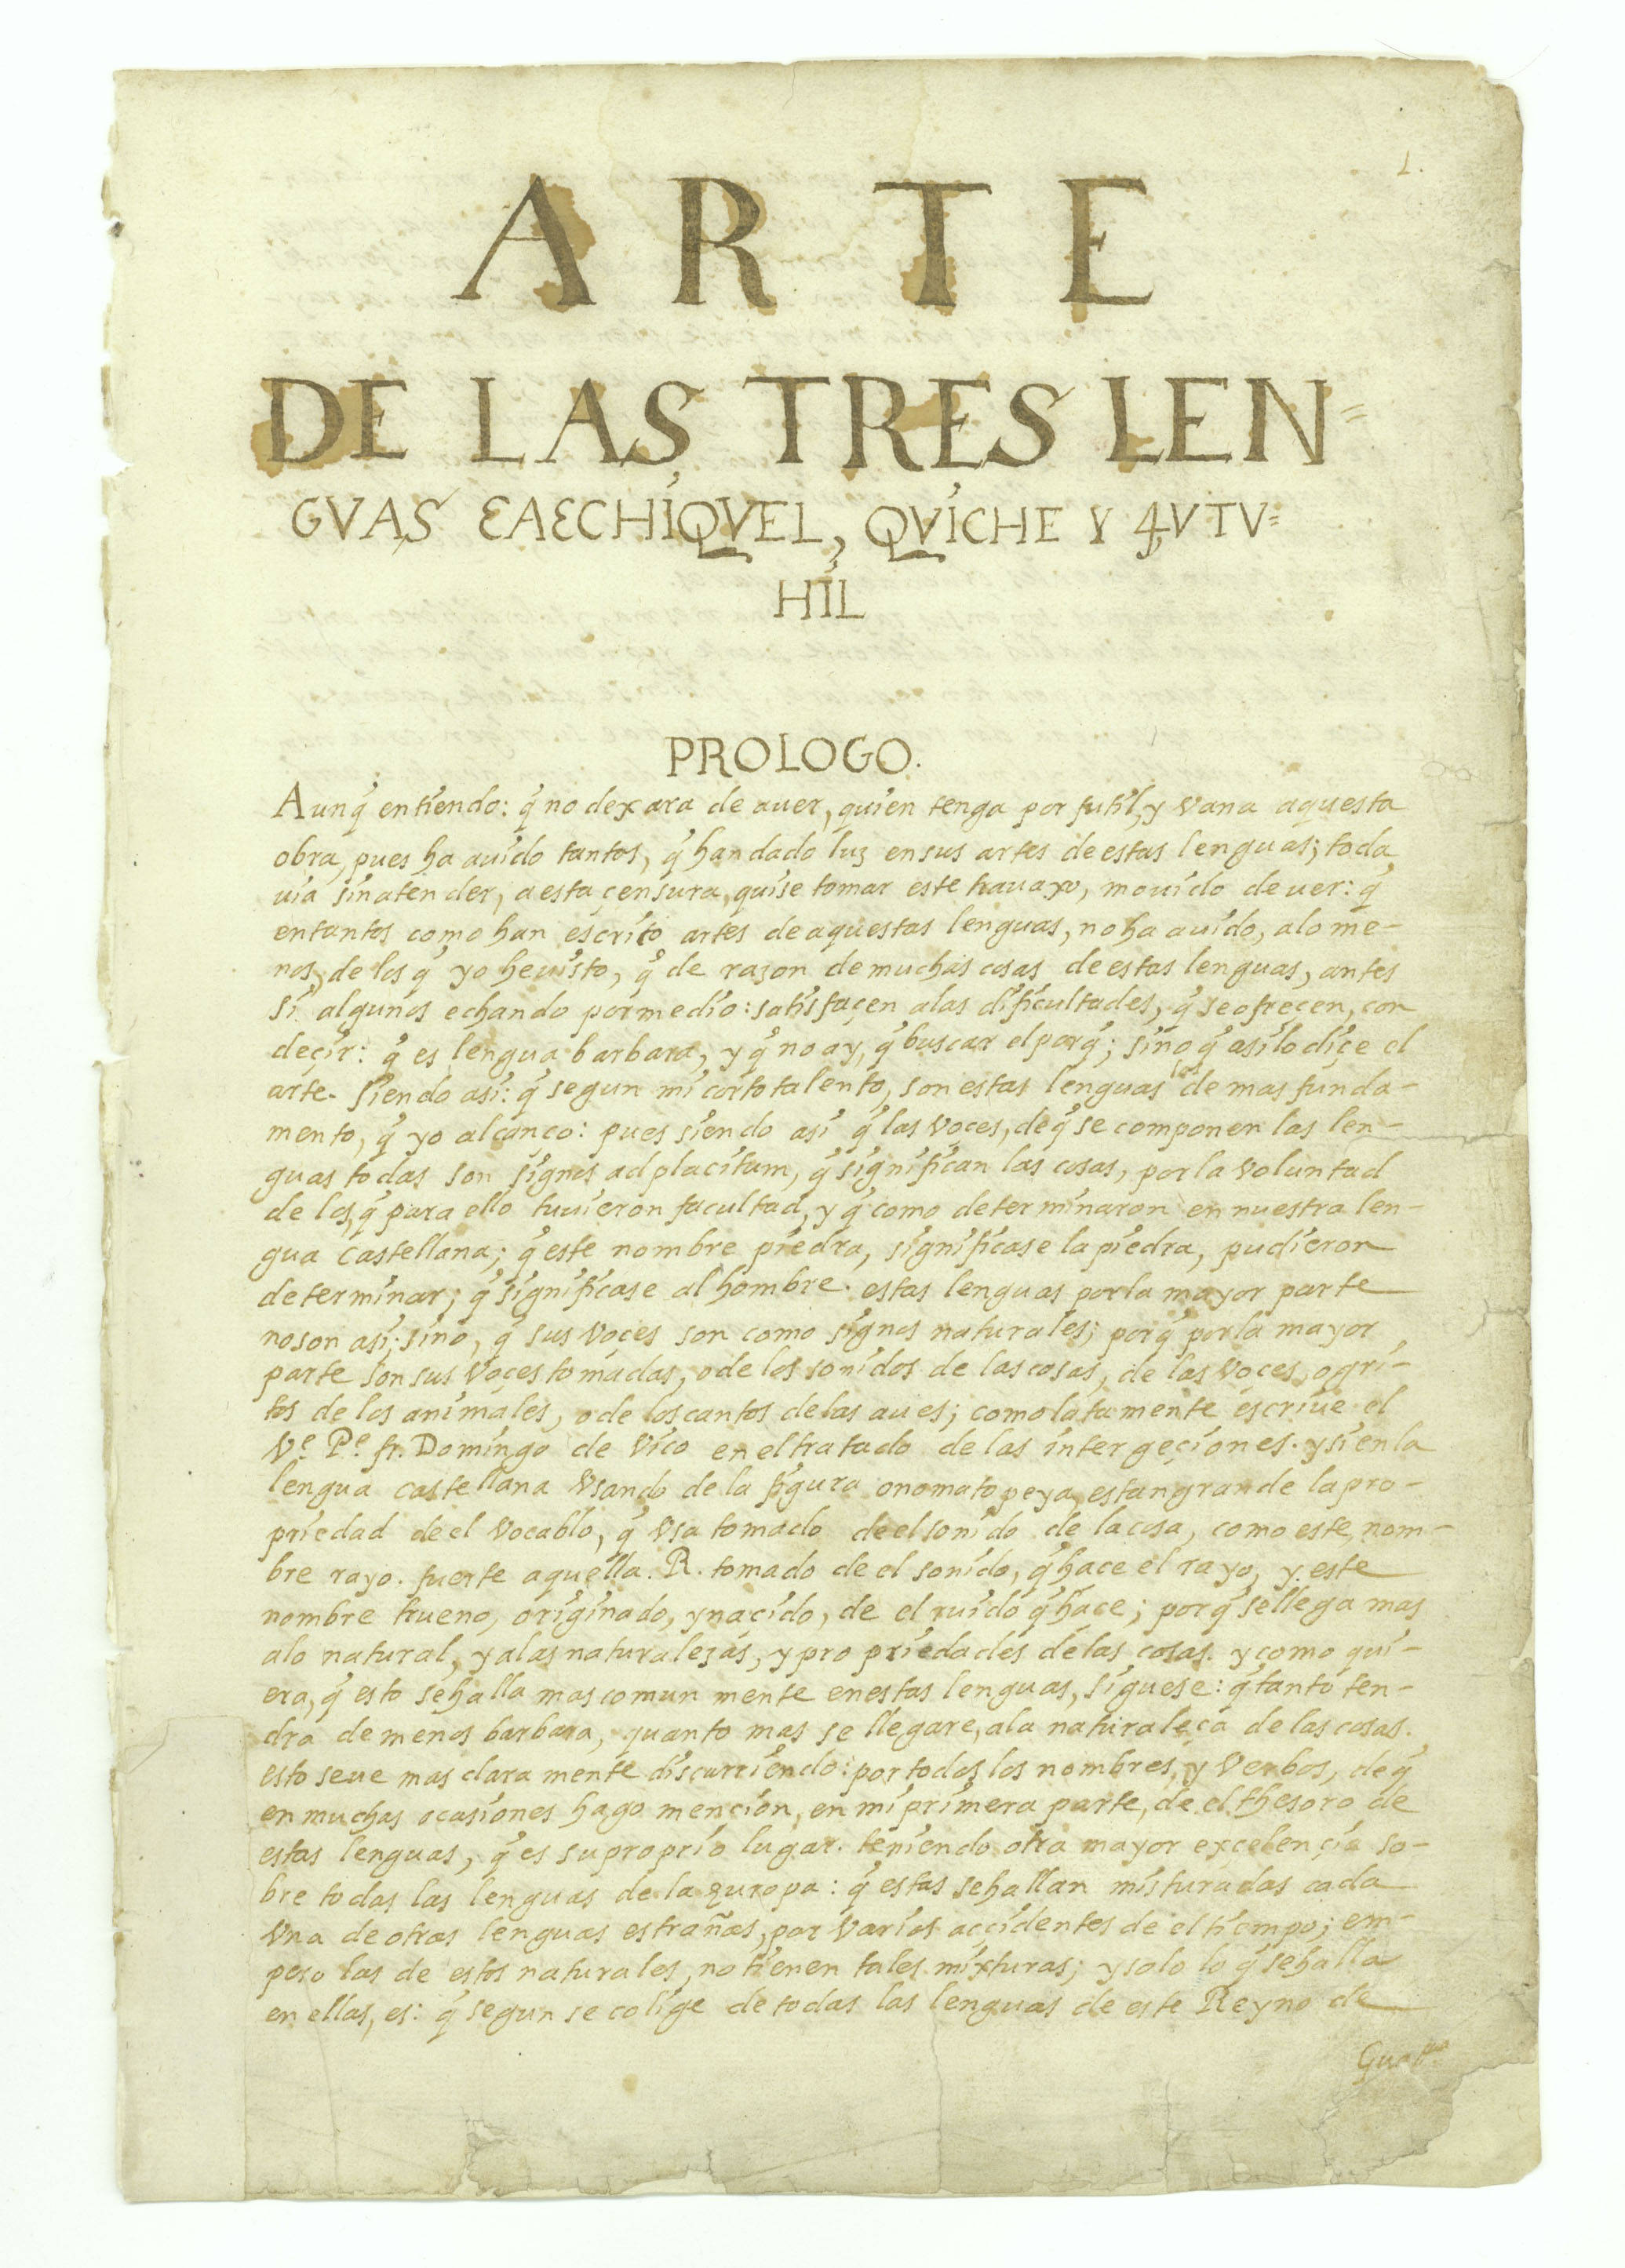 1.
ARTE
DE LAS TRES LEN=
GVAS ƐAƐCHIQVEL, QVICHE Y ꜬVTV=
HIL
PROLOGO.
Aunq̃ entiendo: q̃ no dexara de auer, quien tenga por futil, y vana aquesta
obra, pues ha auido tantos, q̃ han dado luz en sus artes de estas lenguas; toda
uia sin atender, a esta çensura, quise tomar este trauaxo, mouido de uer: q̃
en tantos como han escrito artes de aquestas lenguas, no ha auido, alo me-
nos, de los q̃ yo he uisto, q̃ de razon de muchas cosas de estas lenguas, antes
si algunos echando por medio: satisfaçen alas dificultades, q̃ se ofreçen, con
deçir: q̃ es lengua barbara, y q̃ no ay, q̃ buscar el porq̃; sino q̃ asi lo diçe el
arte. Siendo asi: q̃ segun mi corto talento, son estas lenguas las de mas funda-
mento, q̃ yo alcanço: pues siendo asi q̃ las voces, de q̃ se componen las len-
guas todas son signos ad placitum, q̃ significan las cosas, por la voluntad
de los, q̃ para ello tuuieron facultad, y q̃ como determinaron en nuestra len-
gua castellana; q̃ este nombre piedra, significase la piedra, pudieron
determinar; q̃ significase al hombre. estas lenguas por la mayor parte
no son asi; sino, q̃ sus voces son como signos naturales; porq̃ por la mayor
parte son sus voçes tomadas, o de los sonidos de las cosas, de las voçes, o gri-
tos de los animales, o de los cantos de las aues; como latamente escriue el
Ve. Pe. fr. Domingo de Vico en el tratado de las intergeçiones. y si en la
lengua castellana vsando de la figura onomatopeya, es tan grande la pro-
priedad de el vocablo, q̃ vsa tomado de el sonido de la cosa, como este, nom-
bre rayo. fuerte aquella. R. tomado de el sonido, q̃ hace el rayo, y este
nombre trueno, originado, y nacido, de el ruido q̃ haçe; porq̃ se llega mas
alo natural, y alas naturalezas, y propriedades de las cosas. y como qui-
era, q̃ esto se halla mas comun mente en estas lenguas, siguese: q̃ tanto ten-
dra de menos barbara, quanto mas se llegare, ala naturaleça de las cosas.
esto se ue mas clara mente discurriendo: por todos los nombres, y verbos, de q̃
en muchas ocasiones hago mencion, en mi primera parte, de el thesoro de
estas lenguas, q̃ es su proprio lugar. teniendo otra mayor exçelençia so-
bre todas las lenguas de la europa: q̃ estas se hallan misturadas cada
vna de otras lenguas estrañas, por varios accidentes de el tiempo; em-
pero las de estos naturales, no tienen tales mixturas; y solo lo q̃ se halla
en ellas, es: q̃ segun se colige de todas las lenguas de este Reyno de